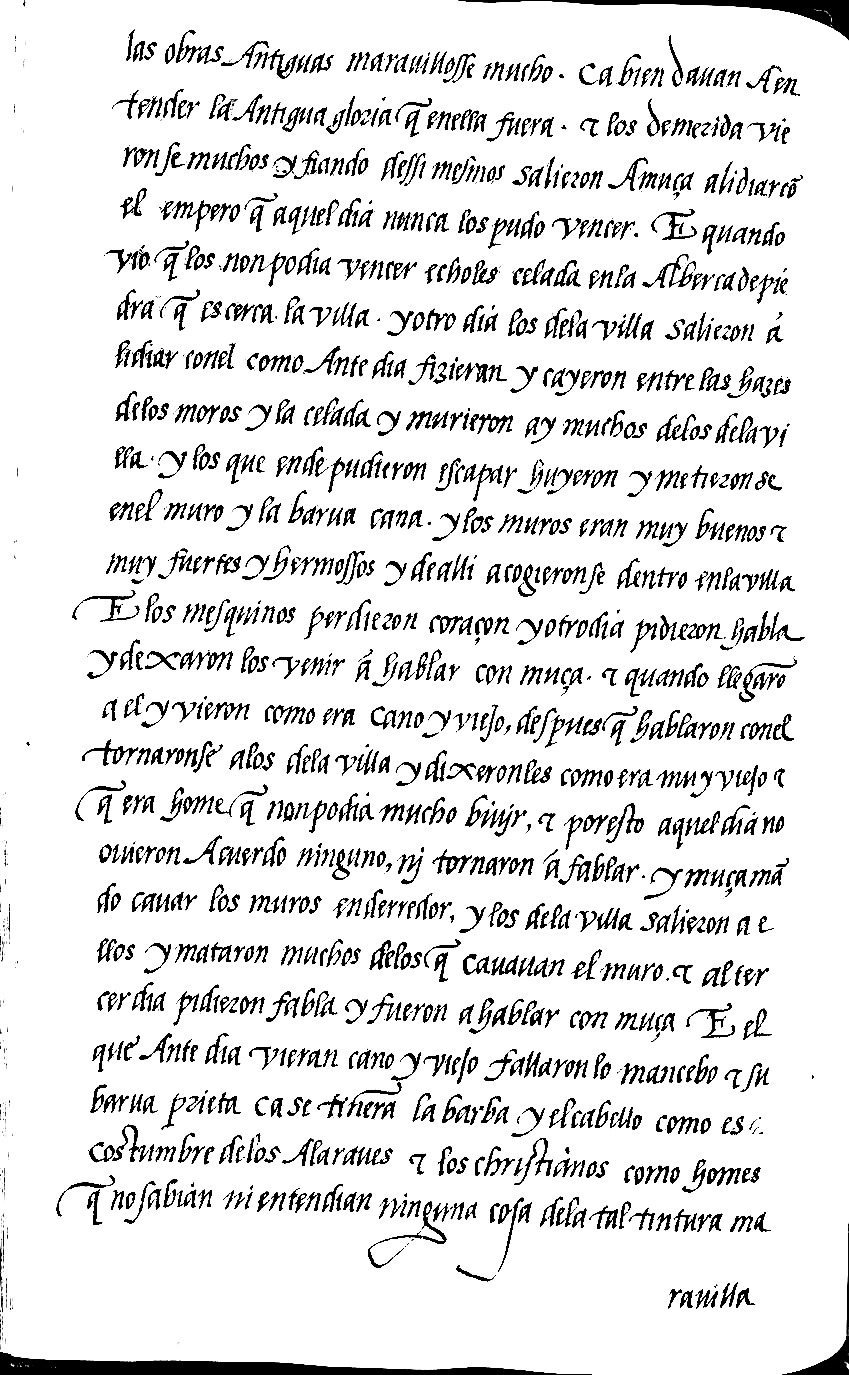 las obras Antiguas marauillosse mucho. Ca bien dauan A en
tender la Antigua gloria q̃ enella fuera. ⁊ los de merida vie
ronse muchos y fiando dessi mesmos salieron A muça alidiar cõ
el empero q̃ aquel dia nunca los pudo vencer. E quando
vio q̃ los non podia vencer echoles celada enla Alberca de pie
dra q̃ es cerca la villa. y otro dia los dela villa salieron á
lidiar conel como Ante dia fizieran y cayeron entre las hazes
delos moros y la celada y murieron ay muchos delos dela vi
lla. y los que ende pudieron escapar huyeron y metieronse
enel muro y la barua cana. y los muros eran muy buenos ⁊
muy fuertes y hermossos y de alli acogieronse dentro enla villa
E los mesquinos perdieron coraçon y otro dia pidieron habla
y dexaron los venir á hablar con muça. ⁊ quando llegarõ
a el y vieron como era cano y viejo, despues q̃ hablaron conel
tornaronse alos dela villa y dixeronles como era muy viejo ⁊
q̃ era home q̃ non podia mucho biuir, ⁊ por esto aquel dia no
ouieron Acuerdo ninguno, nj tornaron á fablar. y muça mã
do cauar los muros enderredor, y los dela villa salieron a e
llos y mataron muchos delos q̃ cauauan el muro. ⁊ al ter
cer dia pidieron fabla y fueron a hablar con muça E el
que Ante dia vieran cano y viejo fallaron lo mancebo ⁊ su
barua prieta ca se tiñera la barba y el cabello como es
costumbre delos Alaraues ⁊ los christianos como homes
q̃ no sabian ni entendian ninguna cosa dela tal tintura ma
rauilla